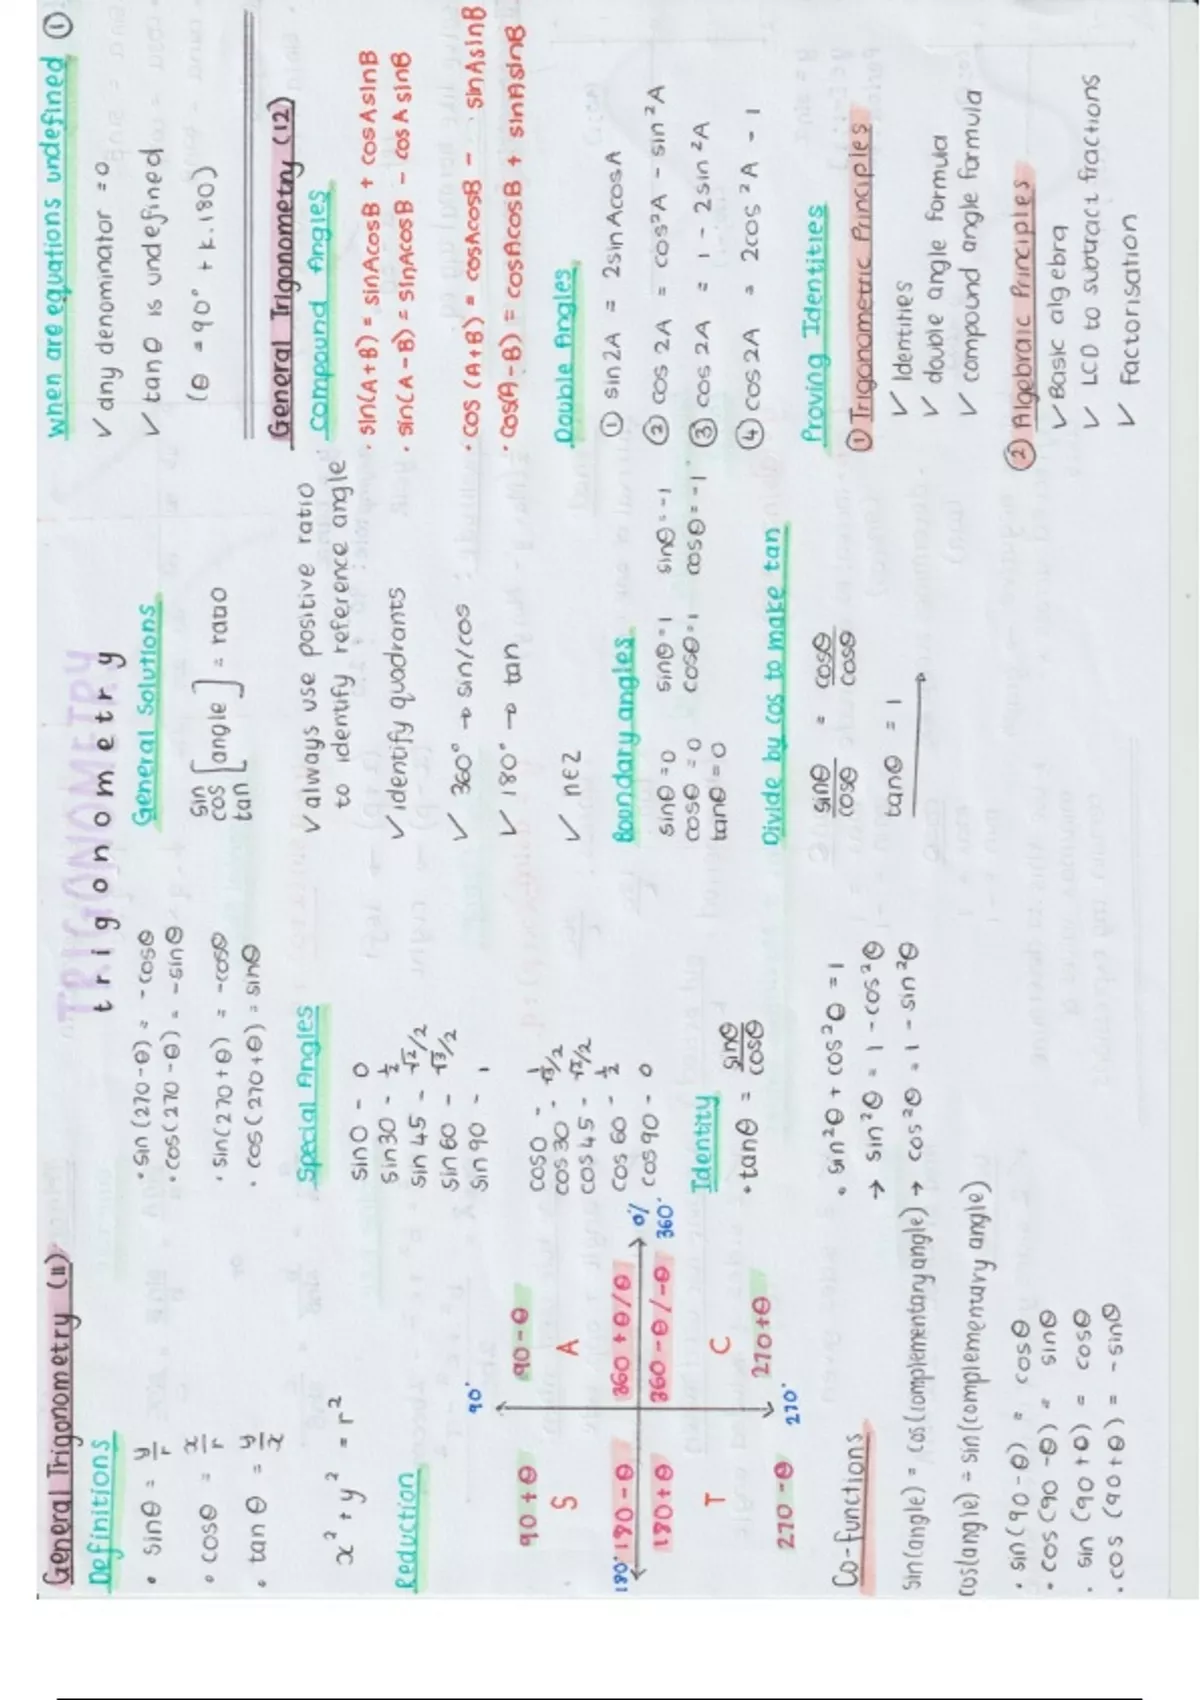 TRIGONOMETRY
trigonometry
General Trigonometry (11)
Definitions
• sinθ = y/r
• cosθ = x/r
• tanθ = y/x
x² + y² = r²
Reduction
90°
90+θ
90-θ
S
A
180°
190-θ
360+θ/θ
0°/
360°
180+θ
360-θ/-θ
T
C
270-θ
270+θ
270°
Co-functions
sin(angle) = cos(complementary angle)
cos(angle) = sin(complementary angle)
• sin(90-θ) = cosθ
• cos(90-θ) = sinθ
• sin(90+θ) = cosθ
• cos(90+θ) = -sinθ
• sin(270-θ) = -cosθ
• cos(270-θ) = -sinθ
• sin(270+θ) = -cosθ
• cos(270+θ) = sinθ
Special Angles
sin0 - 0
sin30 - 1/2
sin45 - √2/2
sin60 - √3/2
sin90 - 1
cos0 - 1
cos30 - √3/2
cos45 - √2/2
cos60 - 1/2
cos90 - 0
Identity
• tanθ = sinθ/cosθ
• sin²θ + cos²θ = 1
→ sin²θ = 1 - cos²θ
→ cos²θ = 1 - sin²θ
General Solutions
sin
cos [angle] = ratio
tan
✓ always use positive ratio
to identify reference angle
✓ identify quadrants
✓ 360° → sin/cos
✓ 180° → tan
✓ n∈Z
Boundary angles
sinθ=0 sinθ=1 sinθ=-1
cosθ=0 cosθ=1 cosθ=-1
tanθ=0
Divide by cos to make tan
sinθ/cosθ = cosθ/cosθ
tanθ = 1
When are equations undefined ①
✓ any denominator = 0
✓ tanθ is undefined
(θ = 90° + k.180)
General Trigonometry (12)
Compound Angles
• sin(A+B) = sinAcosB + cosAsinB
• sin(A-B) = sinAcosB - cosAsinB
• cos(A+B) = cosAcosB - sinAsinB
• cos(A-B) = cosAcosB + sinAsinB
Double Angles
① sin2A = 2sinAcosA
② cos2A = cos²A - sin²A
③ cos2A = 1 - 2sin²A
④ cos2A = 2cos²A - 1
Proving Identities
① Trigonometric Principles
✓ Identities
✓ double angle formula
✓ compound angle formula
② Algebraic Principles
✓ Basic algebra
✓ LCD to subtract fractions
✓ Factorisation